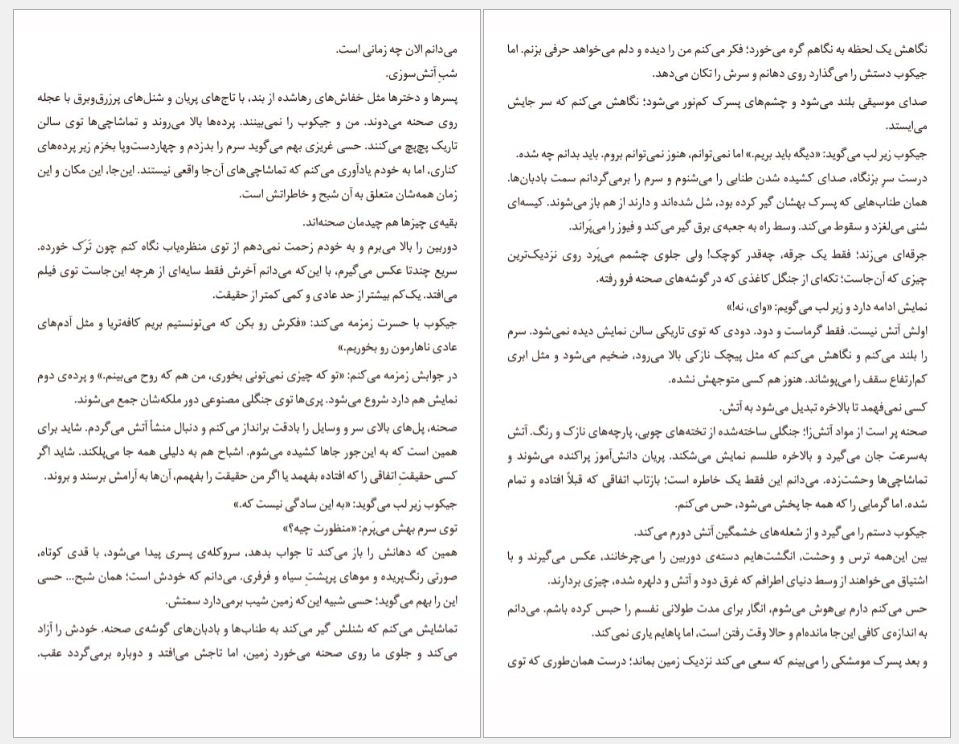 می‌دانم الان چه زمانی است.
شبِ آتش‌سوزی.
پسرها و دخترها مثل خفاش‌های رهاشده از بند، با تاج‌های پریان و شنل‌های پرزرق‌وبرق با عجله
روی صحنه می‌دوند. من و جیکوب را نمی‌بینند. پرده‌ها بالا می‌روند و تماشاچی‌ها توی سالن
تاریک پچ‌پچ می‌کنند. حسی غریزی بهم می‌گوید سرم را بدزدم و چهاردست‌وپا بخزم زیر پرده‌های
کناری، اما به خودم یادآوری می‌کنم که تماشاچی‌های آن‌جا واقعی نیستند. این‌جا، این مکان و این
زمان همه‌شان متعلق به آن شبح و خاطراتش است.
بقیه‌ی چیزها هم چیدمان صحنه‌اند.
دوربین را بالا می‌برم و به خودم زحمت نمی‌دهم از توی منظره‌یاب نگاه کنم چون تَرَک خورده.
سریع چندتا عکس می‌گیرم، با این‌که می‌دانم آخرش فقط سایه‌ای از هرچه این‌جاست توی فیلم
می‌افتد. یک‌کم بیشتر از حد عادی و کمی کمتر از حقیقت.
جیکوب با حسرت زمزمه می‌کند: «فکرش رو بکن که می‌تونستیم بریم کافه‌تریا و مثل آدم‌های
عادی ناهارمون رو بخوریم.»
در جوابش زمزمه می‌کنم: «تو که چیزی نمی‌تونی بخوری، من هم که روح می‌بینم.» و پرده‌ی دوم
نمایش هم دارد شروع می‌شود. پری‌ها توی جنگلی مصنوعی دور ملکه‌شان جمع می‌شوند.
صحنه، پل‌های بالای سر و وسایل را بادقت برانداز می‌کنم و دنبال منشأ آتش می‌گردم. شاید برای
همین است که به این‌جور جاها کشیده می‌شوم. اشباح هم به دلیلی همه جا می‌پلکند. شاید اگر
کسی حقیقتِ اتفاقی را که افتاده بفهمد یا اگر من حقیقت را بفهمم، آن‌ها به آرامش برسند و بروند.
جیکوب زیر لب می‌گوید: «به این سادگی نیست که.»
توی سرم بهش می‌پَرم: «منظورت چیه؟»
همین که دهانش را باز می‌کند تا جواب بدهد، سروکله‌ی پسری پیدا می‌شود، با قدی کوتاه،
صورتی رنگ‌پریده و موهای پرپشتِ سیاه و فرفری. می‌دانم که خودش است؛ همان شبح... حسی
این را بهم می‌گوید؛ حسی شبیه این‌که زمین شیب برمی‌دارد سمتش.
تماشایش می‌کنم که شنلش گیر می‌کند به طناب‌ها و بادبان‌های گوشه‌ی صحنه. خودش را آزاد
می‌کند و جلوی ما روی صحنه می‌خورد زمین، اما تاجش می‌افتد و دوباره برمی‌گردد عقب.
نگاهش یک لحظه به نگاهم گره می‌خورد؛ فکر می‌کنم من را دیده و دلم می‌خواهد حرفی بزنم. اما
جیکوب دستش را می‌گذارد روی دهانم و سرش را تکان می‌دهد.
صدای موسیقی بلند می‌شود و چشم‌های پسرک کم‌نور می‌شود؛ نگاهش می‌کنم که سر جایش
می‌ایستد.
جیکوب زیر لب می‌گوید: «دیگه باید بریم.» اما نمی‌توانم، هنوز نمی‌توانم بروم. باید بدانم چه شده.
درست سرِ بزنگاه، صدای کشیده شدن طنابی را می‌شنوم و سرم را برمی‌گردانم سمت بادبان‌ها.
همان طناب‌هایی که پسرک بهشان گیر کرده بود، شل شده‌اند و دارند از هم باز می‌شوند. کیسه‌ای
شنی می‌لغزد و سقوط می‌کند. وسط راه به جعبه‌ی برق گیر می‌کند و فیوز را می‌پَراند.
جرقه‌ای می‌زند؛ فقط یک جرقه، چه‌قدر کوچک! ولی جلوی چشمم می‌پرد روی نزدیک‌ترین
چیزی که آن‌جاست؛ تکه‌ای از جنگل کاغذی که در گوشه‌های صحنه فرو رفته.
نمایش ادامه دارد و زیر لب می‌گویم: «وای، نه!»
اولش آتش نیست. فقط گرماست و دود. دودی که توی تاریکی سالن نمایش دیده نمی‌شود. سرم
را بلند می‌کنم و نگاهش می‌کنم که مثل پیچک نازکی بالا می‌رود، ضخیم می‌شود و مثل ابری
کم‌ارتفاع سقف را می‌پوشاند. هنوز هم کسی متوجهش نشده.
کسی نمی‌فهمد تا بالاخره تبدیل می‌شود به آتش.
صحنه پر است از مواد آتش‌زا؛ جنگلی ساخته‌شده از تخته‌های چوبی، پارچه‌های نازک و رنگ. آتش
به‌سرعت جان می‌گیرد و بالاخره طلسم نمایش می‌شکند. پریان دانش‌آموز پراکنده می‌شوند و
تماشاچی‌ها وحشت‌زده. می‌دانم این فقط یک خاطره است؛ بازتاب اتفاقی که قبلاً افتاده و تمام
شده. اما گرمایی را که همه جا پخش می‌شود، حس می‌کنم.
جیکوب دستم را می‌گیرد و از شعله‌های خشمگین آتش دورم می‌کند.
بین این‌همه ترس و وحشت، انگشت‌هایم دسته‌ی دوربین را می‌چرخانند، عکس می‌گیرند و با
اشتیاق می‌خواهند از وسط دنیای اطرافم که غرق دود و آتش و دلهره شده، چیزی بردارند.
حس می‌کنم دارم بی‌هوش می‌شوم، انگار برای مدت طولانی نفسم را حبس کرده باشم. می‌دانم
به اندازه‌ی کافی این‌جا مانده‌ام و حالا وقت رفتن است، اما پاهایم یاری نمی‌کند.
و بعد پسرک مومشکی را می‌بینم که سعی می‌کند نزدیک زمین بماند؛ درست همان‌طوری که توی